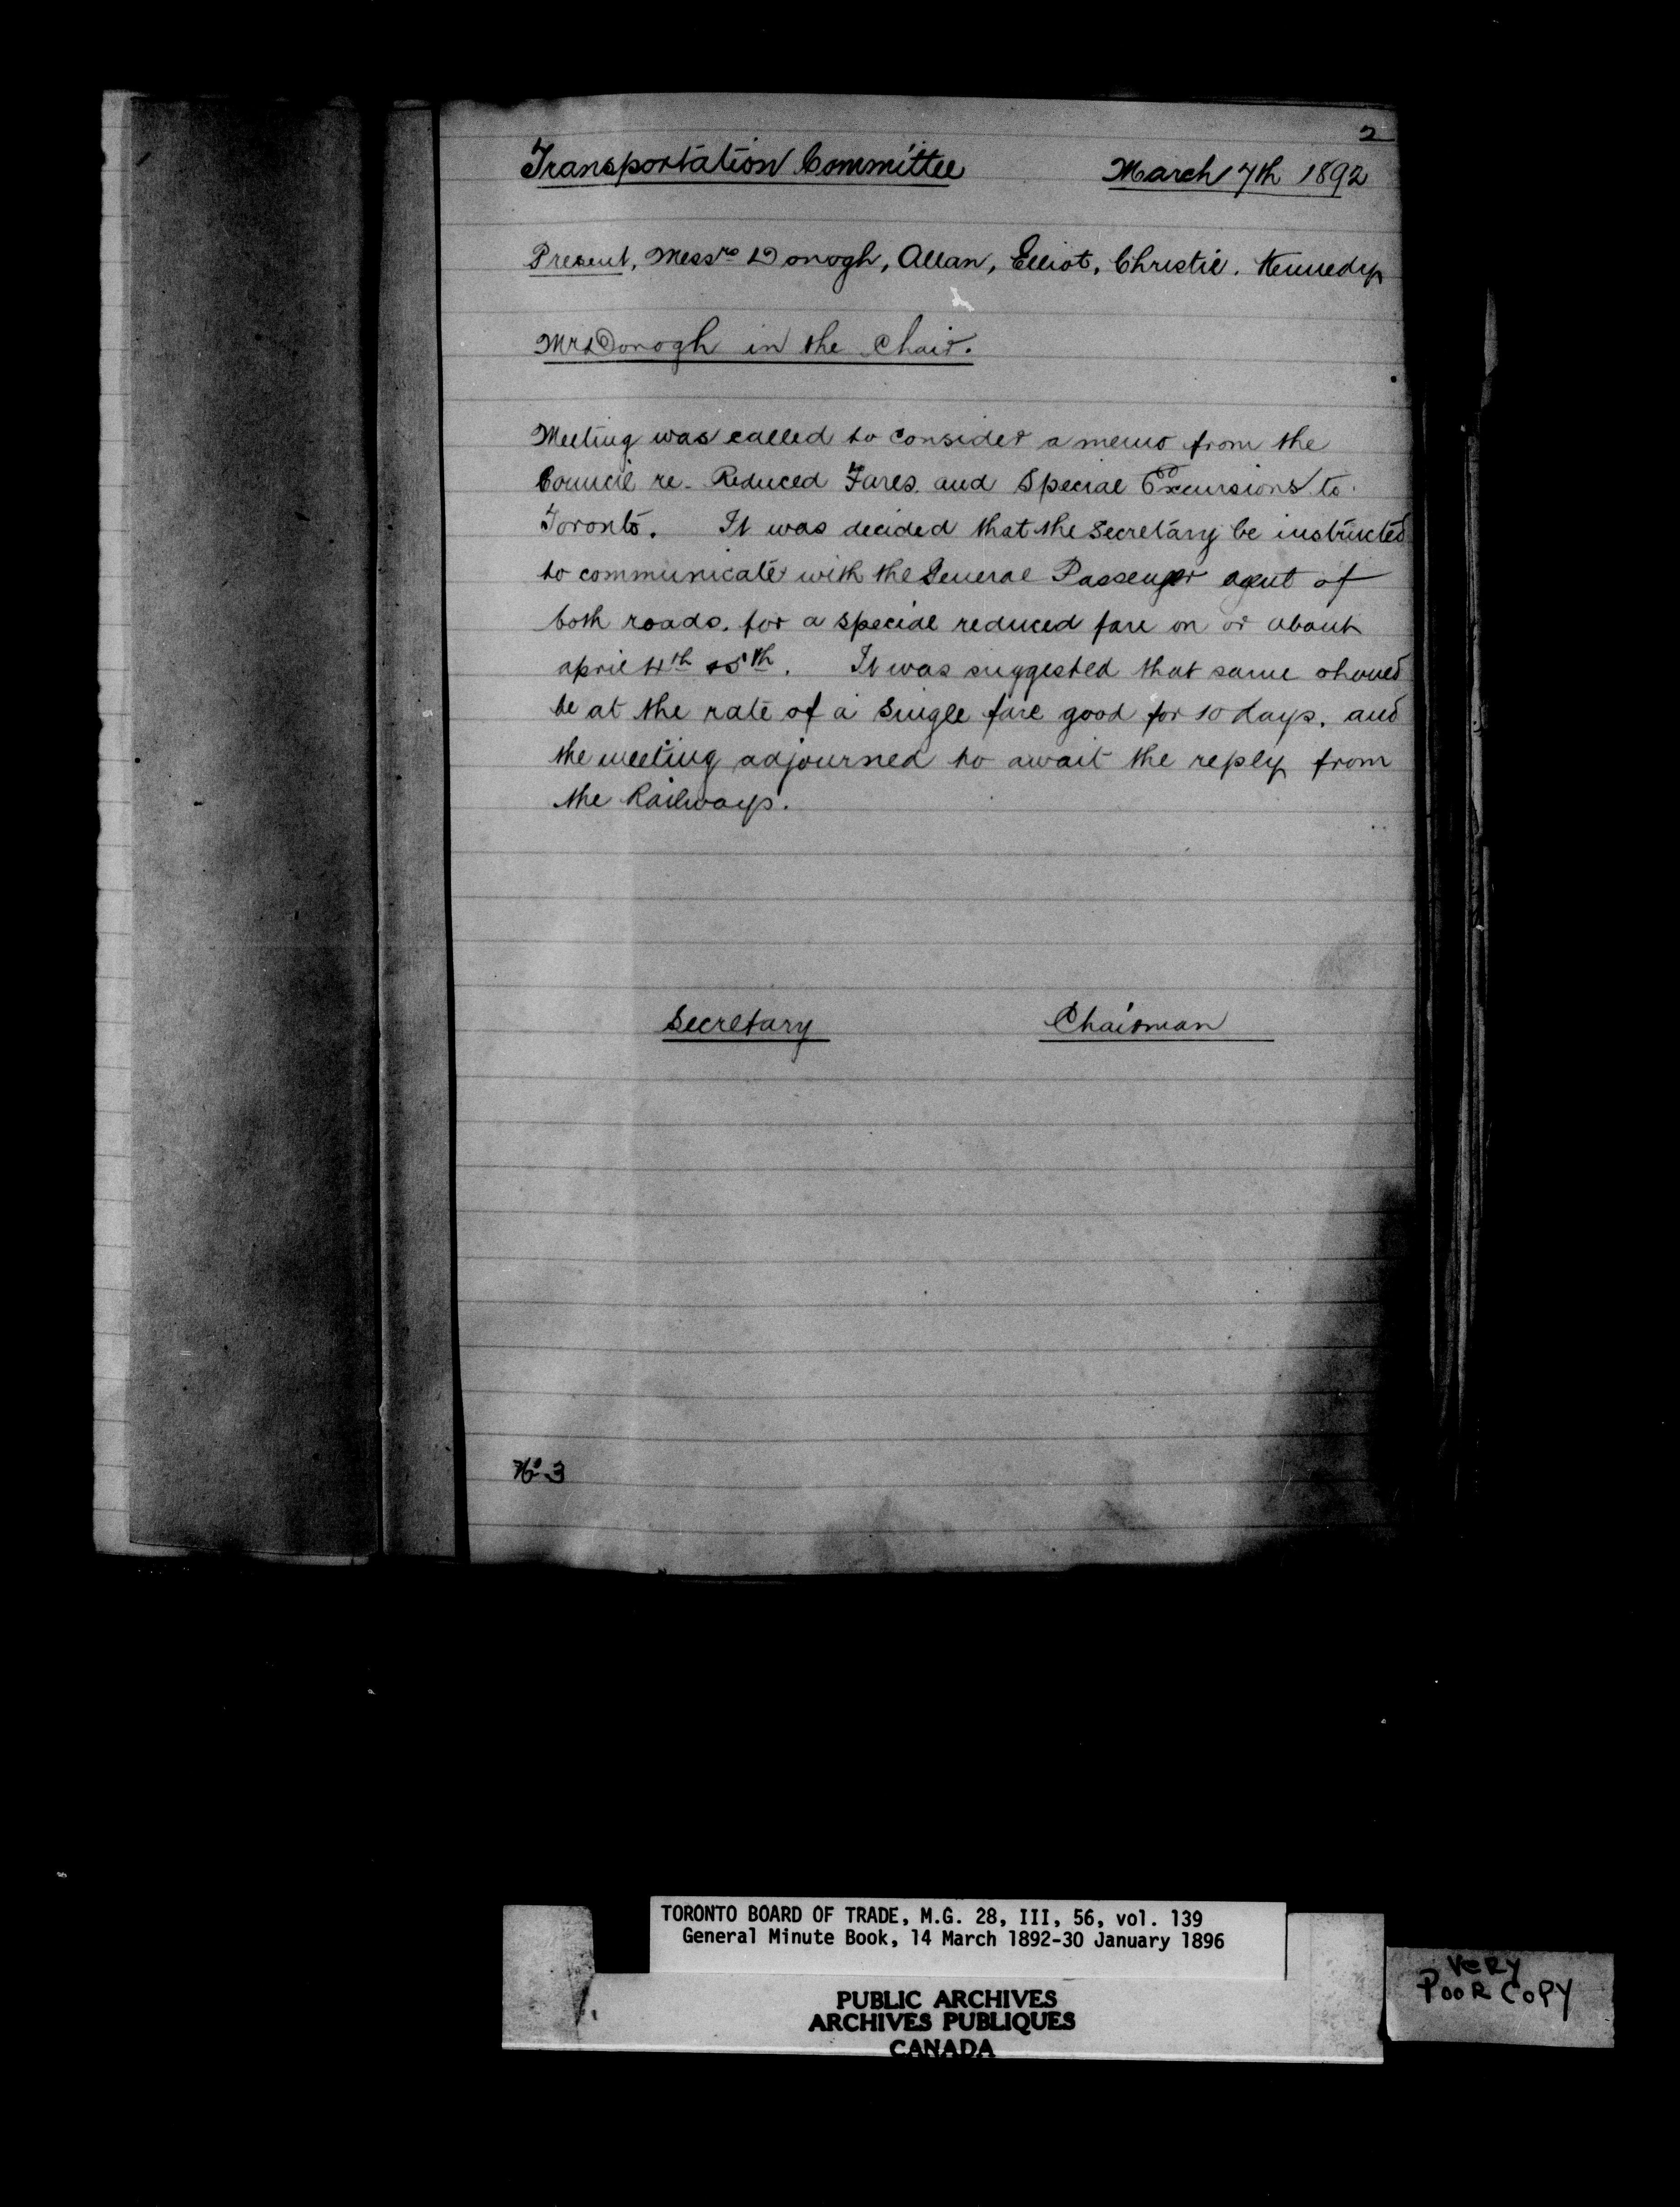 2
Transportation Committee March 7th 1892
Present, Messrs Donogh, Allan, Elliot, Christie, Kennedy
Mr Donogh in the Chair.
Meeting was called to consider a memo from the
Council re- Reduced Fares, and Special Excursions to
Toronto. It was decided that the Secretary be instructed
to communicate with the General Passenger agent of
both roads, for a special reduced fare on or about
april 4th & 5th. It was suggested that same should
be at the rate of a Single fare good for 10 days, and
the meeting adjourned to await the reply from
the Railways.
Secretary Chairman
No 3
TORONTO BOARD OF TRADE, M.G. 28, III, 56, vol. 139
General Minute Book, 14 March 1892-30 January 1896
PUBLIC ARCHIVES
ARCHIVES PUBLIQUES
CANADA
VERY
POOR COPY